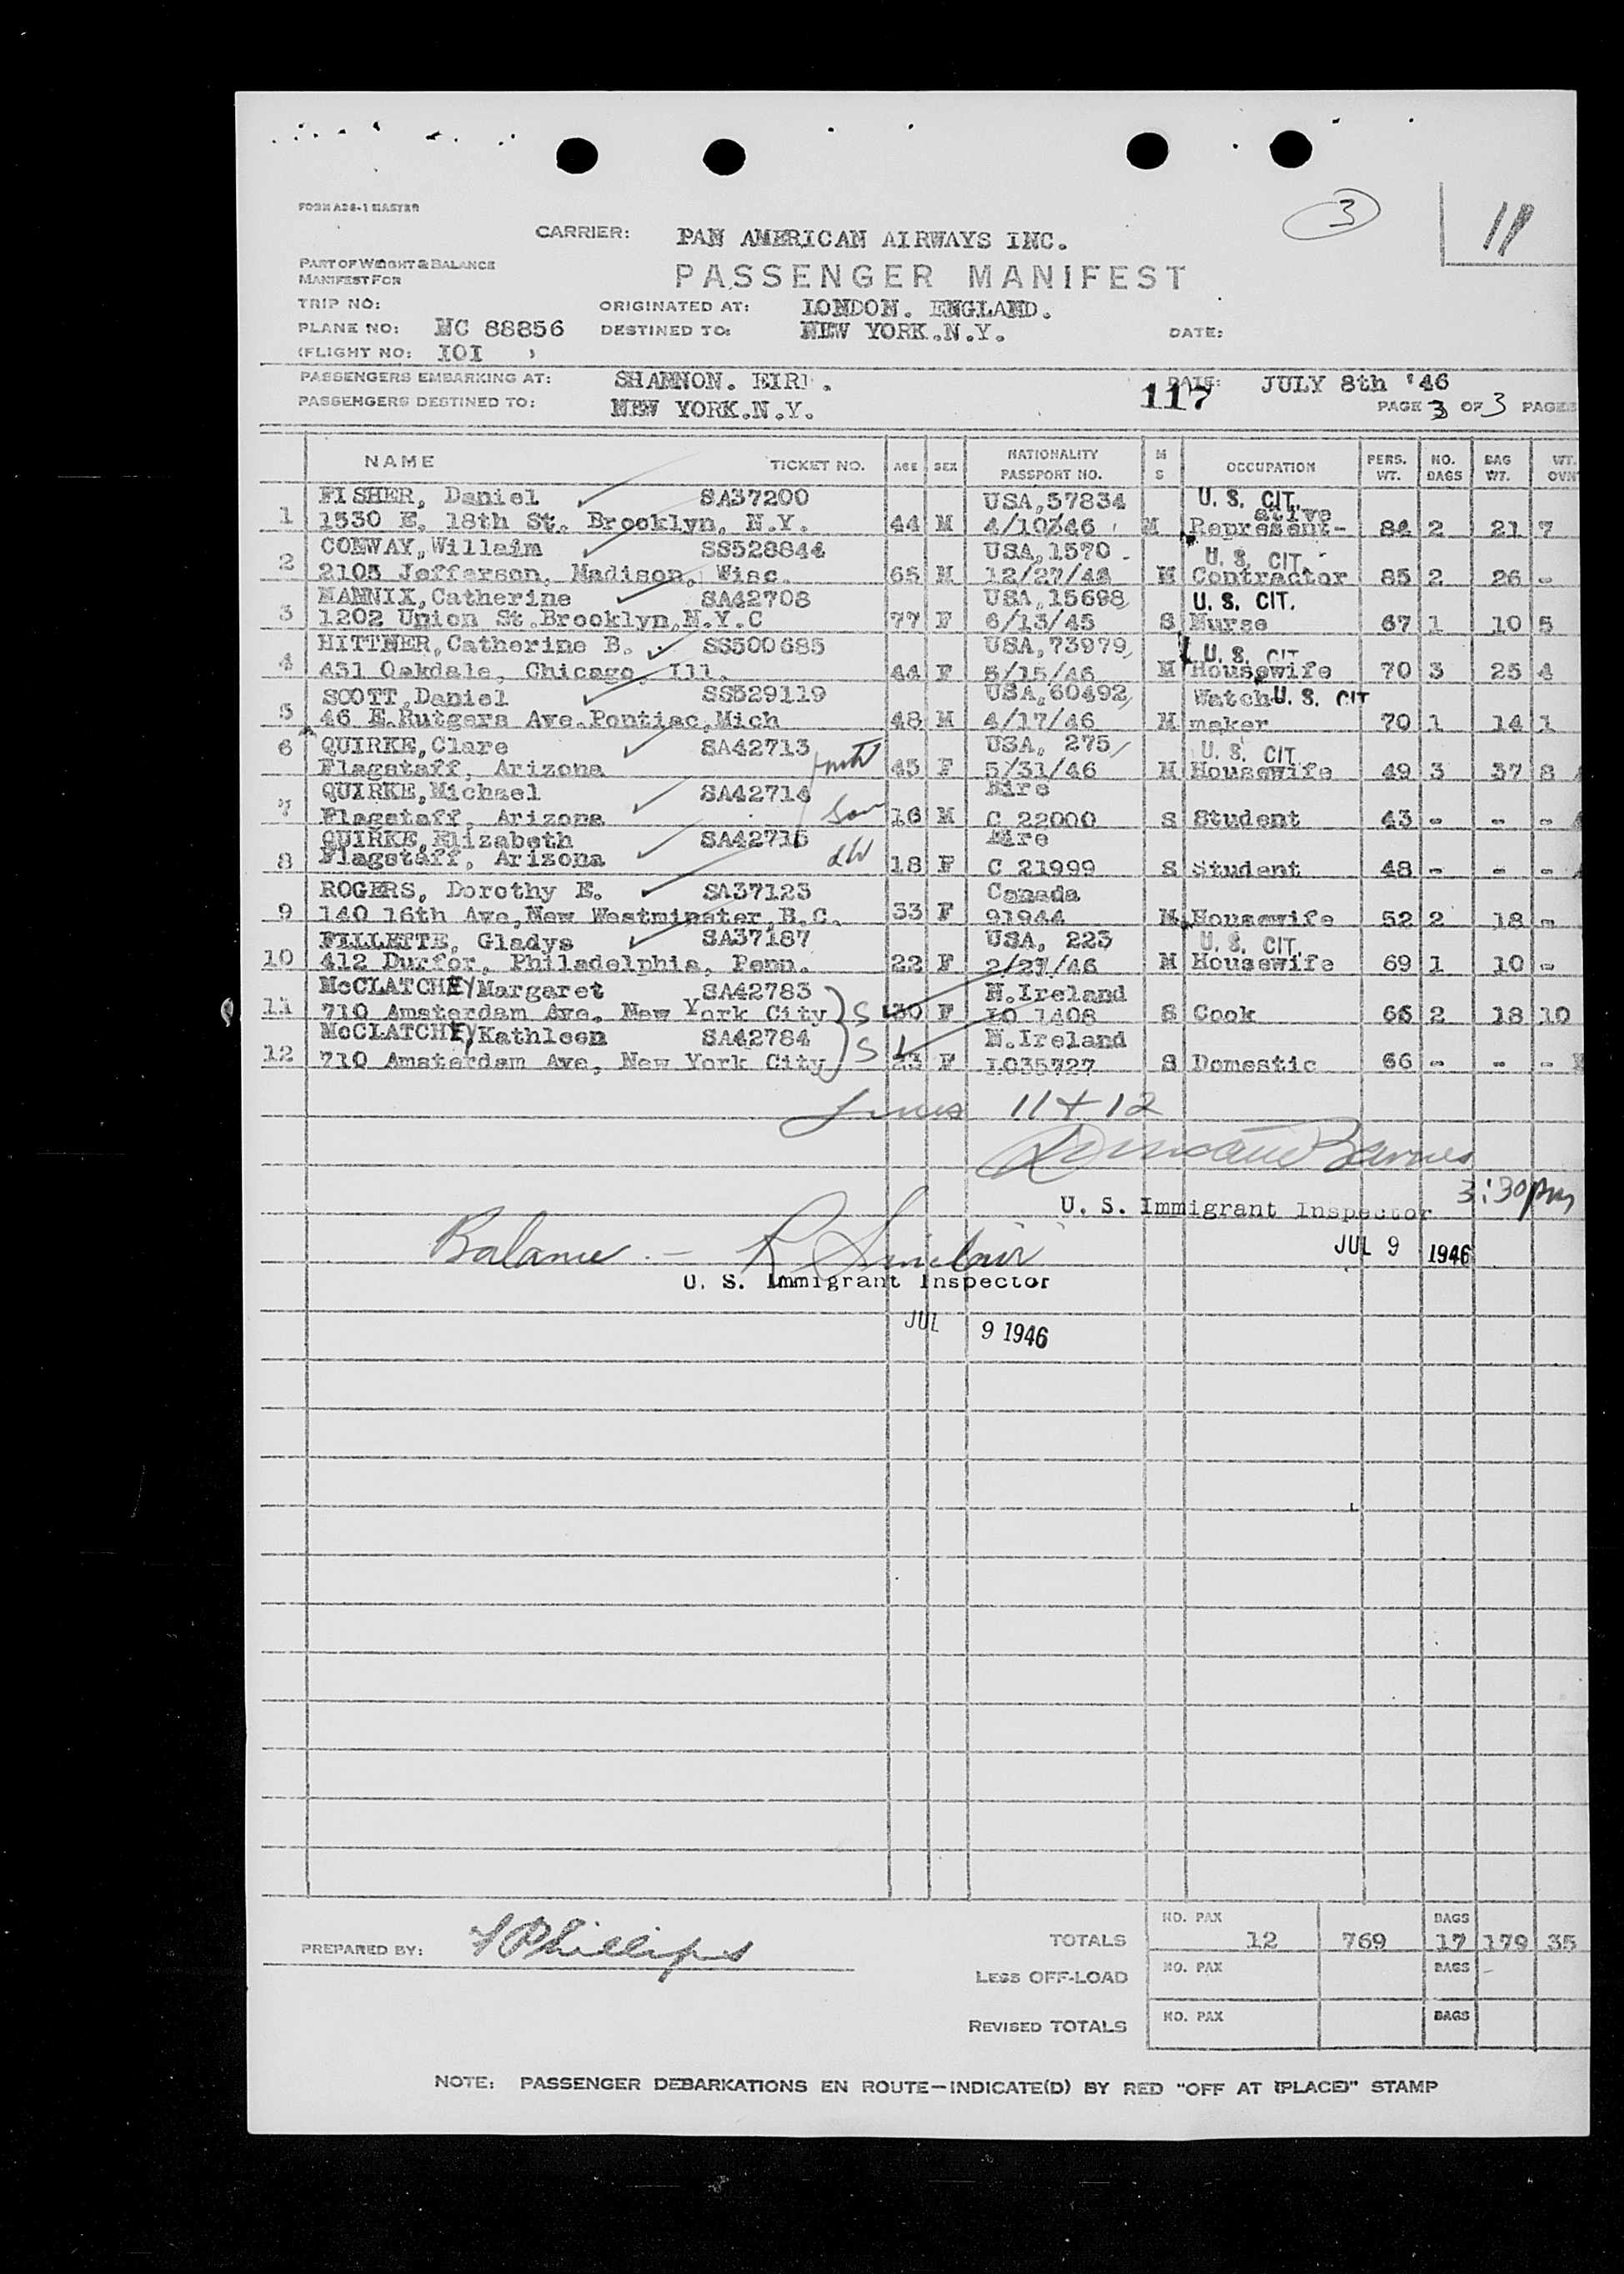 FORM A26-1 MASTER
3
11
CARRIER: PAN AMERICAN AIRWAYS INC.
PART OF WEIGHT & BALANCE
MANIFEST FOR
PASSENGER MANIFEST
TRIP NO: ORIGINATED AT: LONDON. ENGLAND.
PLANE NO: NC 88856 DESTINED TO: NEW YORK.N.Y. DATE:
(FLIGHT NO: IOI
PASSENGERS EMBARKING AT: SHANNON. EIRE. DATE: JULY 8th '46
117
PASSENGERS DESTINED TO: NEW YORK.N.Y. PAGE 3 OF 3 PAGES
NAME TICKET NO. AGE SEX NATIONALITY PASSPORT NO. M S OCCUPATION PERS. WT. NO. BAGS BAG WT. WT. OVN
FISHER, Daniel SA37200 USA,57834 U. S. CIT.
ative
1 1530 E. 18th St. Brooklyn, N.Y. 44 M 4/10/46 M Represent- 84 2 21 7
CONWAY,Willaim SS528844 USA,1570 U. S. CIT.
2 2105 Jefferson, Madison, Wisc. 65 M 12/27/45 M Contractor 85 2 26 -
MANNIX,Catherine SA42708 USA,15698 U. S. CIT.
3 1202 Union St.Brooklyn,N.Y.C 77 F 6/13/45 S Nurse 67 1 10 5
HITTNER,Catherine B. SS500685 USA,73979 U. S. CIT
4 451 Oakdale, Chicago, Ill. 44 F 5/15/46 M Housewife 70 3 25 4
SCOTT,Daniel SS529119 USA,60492 Watch U. S. CIT
5 46 E.Rutgers Ave.Pontiac,Mich 48 M 4/17/46 M maker 70 1 14 1
6 QUIRKE,Clare SA42713 USA, 275 U. S. CIT.
Flagstaff, Arizona 45 F 5/31/46 M Housewife 49 3 37 8
QUIRKE,Michael SA42714 Eire
7 Flagstaff, Arizona Son 16 M C 22000 S Student 43 - - -
QUIRKE,Elizabeth SA42715 Eire
8 Flagstaff, Arizona 18 F C 21999 S Student 48 - - -
ROGERS, Dorothy E. SA37123 Canada
9 140 16th Ave,New Westminster,B.C. 33 F 91944 M Housewife 52 2 18 -
FILLETTE, Gladys SA37187 USA, 223 U. S. CIT.
10 412 Durfor, Philadelphia, Penn. 22 F 2/27/46 M Housewife 69 1 10 -
McCLATCHEY Margaret SA42783 N.Ireland
11 710 Amsterdam Ave, New York City S 30 F LO 1408 S Cook 66 2 18 10
McCLATCHEY Kathleen SA42784 N.Ireland
12 710 Amsterdam Ave, New York City S 23 F LO35727 S Domestic 66 - - -
Lines 11 + 12
Barnes
U. S. Immigrant Inspector 3:30pm
JUL 9 1946
Balance - R Sinclair
U. S. Immigrant Inspector
JUL 9 1946
PREPARED BY: Phillips
TOTALS NO. PAX 12 769 BAGS 17 179 35
LESS OFF-LOAD NO. PAX BAGS -
REVISED TOTALS NO. PAX BAGS
NOTE: PASSENGER DEBARKATIONS EN ROUTE—INDICATE(D) BY RED "OFF AT (PLACE)" STAMP